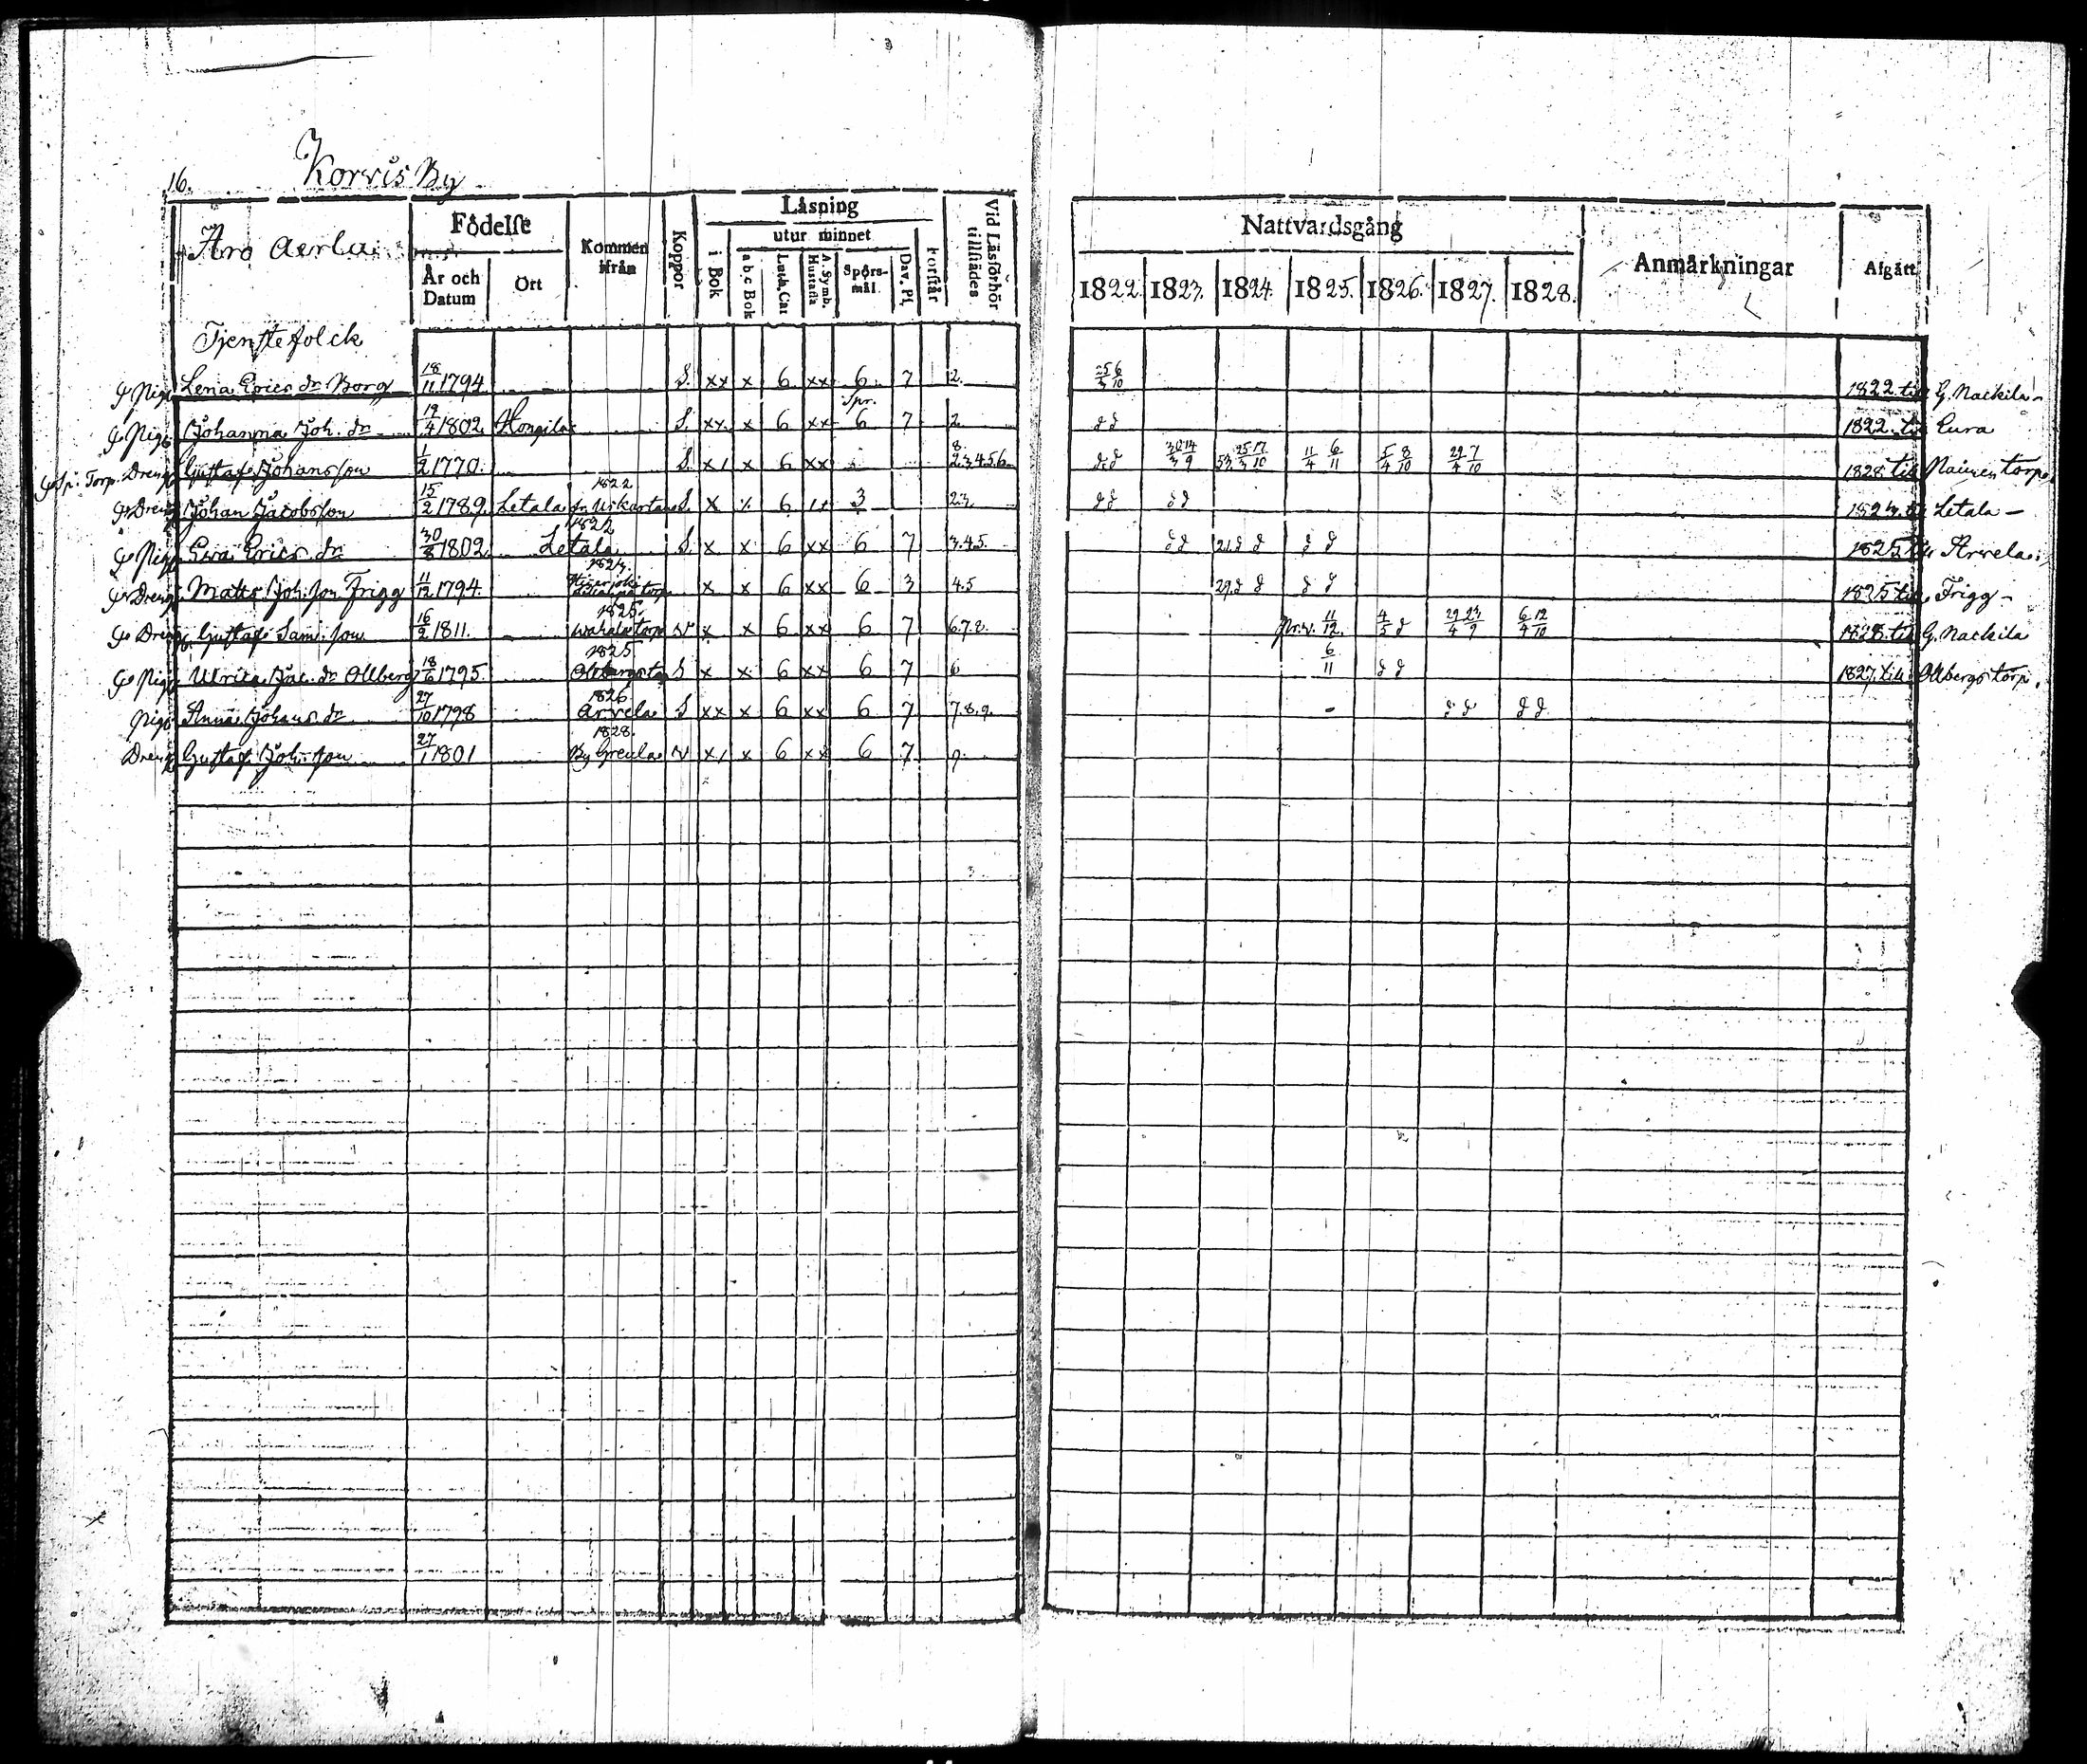 16. Korvis By
Aro Aerla
Födelse
År och Datum
Ort
Kommen ifrån
Koppor
Läsning
i Bok
utur minnet
a b c Bok
Luth. Cat
A. Symb. Hustafla
Spörs-mål
Dav. Ps.
Förstår
Vid Läsförhör tillstädes
Nattvardsgång
1822. 1823. 1824. 1825. 1826. 1827. 1828.
Anmärkningar
Afgått
Tjenstefolck
Pig. Lena Erics dr Borg 18/11 1794 S. xx x 6 xx 6 7 2. 25/3 6/10 1822 till G. Nackila
Spr.
Pig. Johanna Joh. dr 19/4 1802 Honjila S. xx x 6 xx 6 7 2 d d 1822 till Eura
Sp: Torp. Dreng Gustaf Johansson 1/2 1770. S. x/ x 6 xx 8. 2.3.4.5.6. d d 30/3 14/9 25/3 17/10 11/4 6/11 5/4 8/10 29/4 7/10 1828 till Nainen torp.
1822
Dreng Johan Jacobsson 15/2 1789 Letala S. x 6 3 2.3. d d d d 1824 till Letala
1822
Pig. Ewa Erics dr 30/8 1802 Letala S. x x 6 xx 6 7 3.4.5. d d 21. d d d d 1825 till Arvela
1824.
Dreng Matts Joh. son Frigg 11/12 1794. x x 6 xx 6 3 4.5 29. d d d d 1825 till Frigg
1825.
Dreng Gustaf Sam. son 16/2 1811. Wahala torp v x x 6 xx 6 7 6.7.8. 11/12. 4/5 d 29/4 23/9 6/4 12/10 1828 till G. Nackila
1825
Pig. Ulrica Jac. dr Ollberg 18/6 1795. Ollbergs to S x x 6 xx 6 7 6 6/11 d d 1827 till Ollbergs torp.
1826
Pig. Anna Johans dr 27/10 1798 Arvela S xx x 6 xx 6 7 7.8.9. d d d d
1828.
Dreng Gustaf Joh. son 27/1 1801 By Greula v x/ x 6 xx 6 7 9.